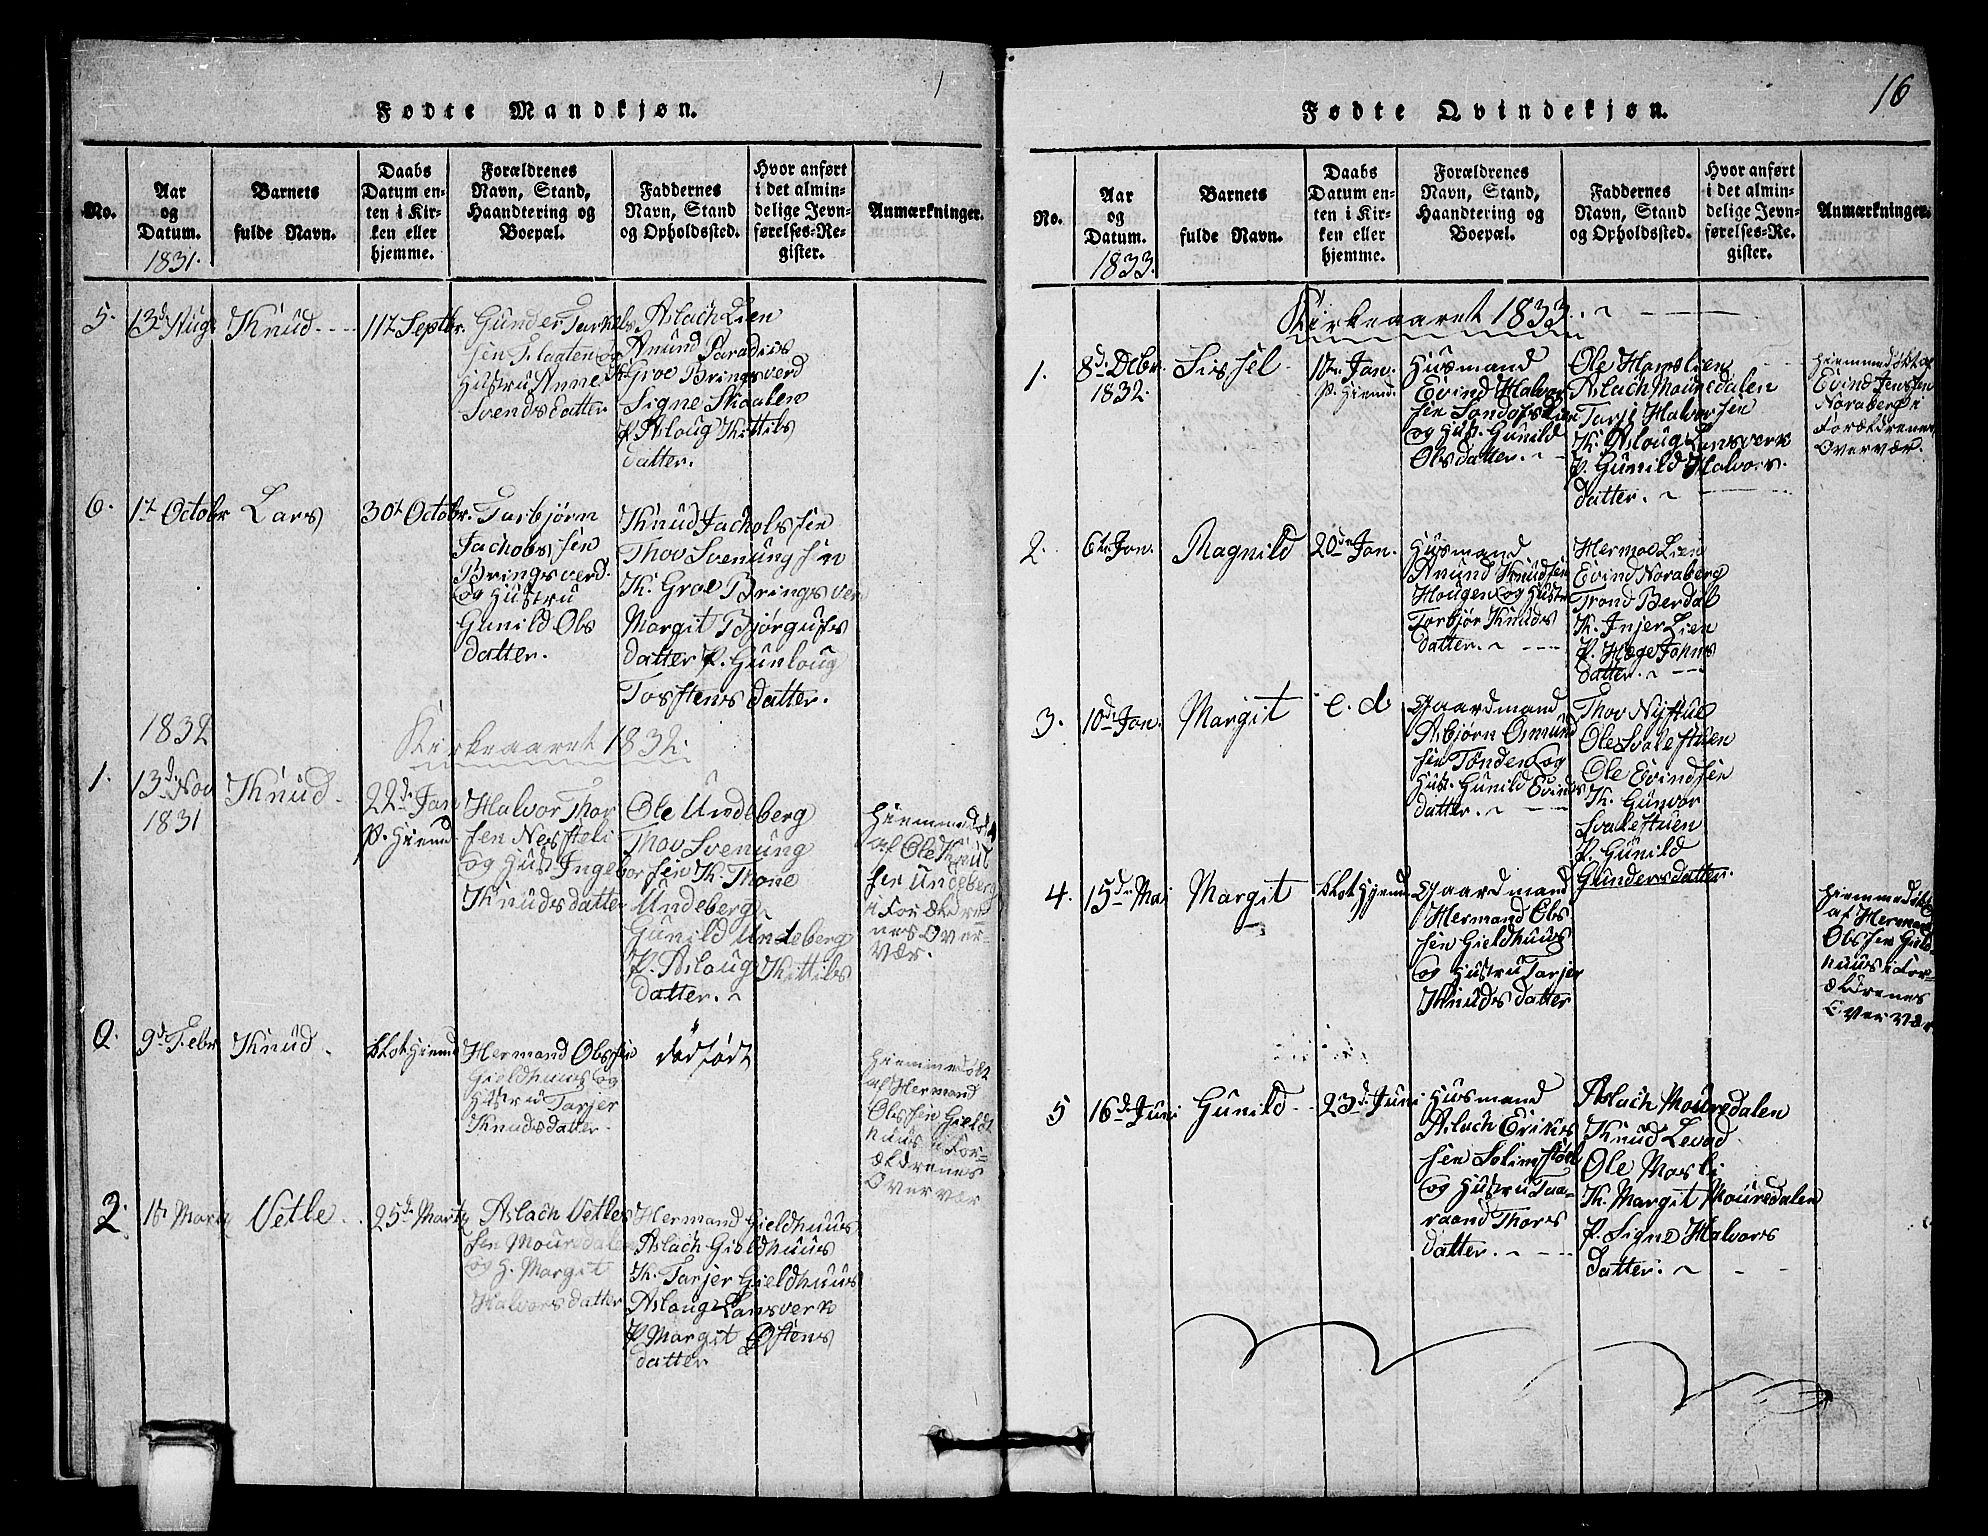 Fødte Mandkjøn.
No.
Aar
og
Datum.
1831.
Barnets
fulde Navn.
Daabs
Datum en-
ten i Kir-
ken eller
hjemme.
Forældrenes
Navn, Stand,
Haandtering og
Boepæl.
Faddernes
Navn, Stand
og Opholdssted.
Hvor anført
i det almin-
delige Jevn-
førelses-Re-
gister.
Anmærkninger.
5.
13d Aug.
Knud
11t Septbr.
Gunder Tarkels
sen Slaaten og
Hustru Anne
Svendsdatter
Aslach Lien
Anund Paradiis
K. Groe Bringsverd
Signe Skaalen
P. Aslaug Kittils
datter.
6.
1t Octobr
Lars
30t Octobr.
Tarbjørn
Jachobs sen
Bringsverd.
og Hustru
Gunild Ols
datter.
Knud Jachols sen
Thov Svenung sen
K. Groe Bringsver
Margit Bjørgufs
datter P. Gunloug
Tosstens datter.
1832
Kirkeaaret 1832.
1.
13d Nov
1831
Knud
22d Jan
P. Hiemd
Halvor Thor
sen Nerssteli
og Hust Ingebor
Knudsdatter
Ole Undeberg
Thov Svenung
sen K. Thone
Undeberg
Gunild Undeberg
P. Aslaug Kittils
datter.
Hiemmedøbt
af Ole Knut
sen Undeberg
i Forældre
nes Over-
vær.
0.
9d Febr
Knud
blot Hiemd
Hermand Ols sen
Gieldhuus og
Hustru Tarjer
Knudsdatter
dødfødt
Hiemmedøbt
af Hermand
Ols sen Gield
huus i For-
ældrenes
Overvær
2.
1t Marts
Vetle
25d Marts
Aslach Vetles
sen Mouredalen
og H. Margit
Halvorsdatter
Hermand Gieldhuus
Aslach Gieldhuus
K. Tarjer Gieldhuus
Aslaug Lansverk
P. Margit Østens
datter
16
Fødte Qvindekjøn.
No.
Aar
og
Datum.
1833.
Barnets
fulde Navn.
Daabs
Datum en-
ten i Kir-
ken eller
hjemme.
Forældrenes
Navn, Stand,
Haandtering og
Boepæl.
Faddernes
Navn, Stand
og Opholdssted.
Hvor anført
i det almin-
delige Jevn-
førelses-Re-
gister.
Anmærkninger.
Kirkeaaret 1833.
1.
8d Dcbr.
1832.
Sissel
1te Jan.
P. Hiemd.
Husmand
Eivind Halvor
sen Sondofslien
og Hust. Gunild
Olsdatter.
Ole Homslien
Aslach Mouredalen
Tarje Halvorsen
K. Aslaug Lansverk
P. Gunild Halvors.
datter.
Hiemmedøbt af
Evind Jenssen
Noraberg i
Forældrenes
Overvær.
2.
6te Jan.
Ragnild
20de Jan.
Husmand
Anund Knudsen
Hougen og Hustr
Torbjør Knuds
datter.
Hermoe Lien
Eivind Noraberg
Trond Berdal
K. Injer Lien
P. Hæge Johns
datter.
3.
10de Jan.
Margit
e. d
Gaardmand
Asbjørn Osmund
sen Tønden og
Hust. Gunild Evinds
datter.
Thov Nystul
Ole Svalestuen
Ole Evindsen
K. Gunvor
Svalestuen
P. Gunild
Gundersdatter.
4.
15de Mai
Margit
blot Hjemd
Gaardmand
Hermand Ols
sen Gieldhuus
og Hustru Tarjer
Knuds datter
Hiemmedøbt
af Hermand
Ols sen Gield
huus i For-
ældrenes
Overvær
5
16de Juni
Gunild
23d Juni
Husmand
Aslach Eriks
sen Solimstøl
og Hustru Taa-
raand Thors
datter.
Aslach Mouredalen
Knud Levad
Ole Mosli
K. Margit Mouredalen
P. Signe Halvors
datter.